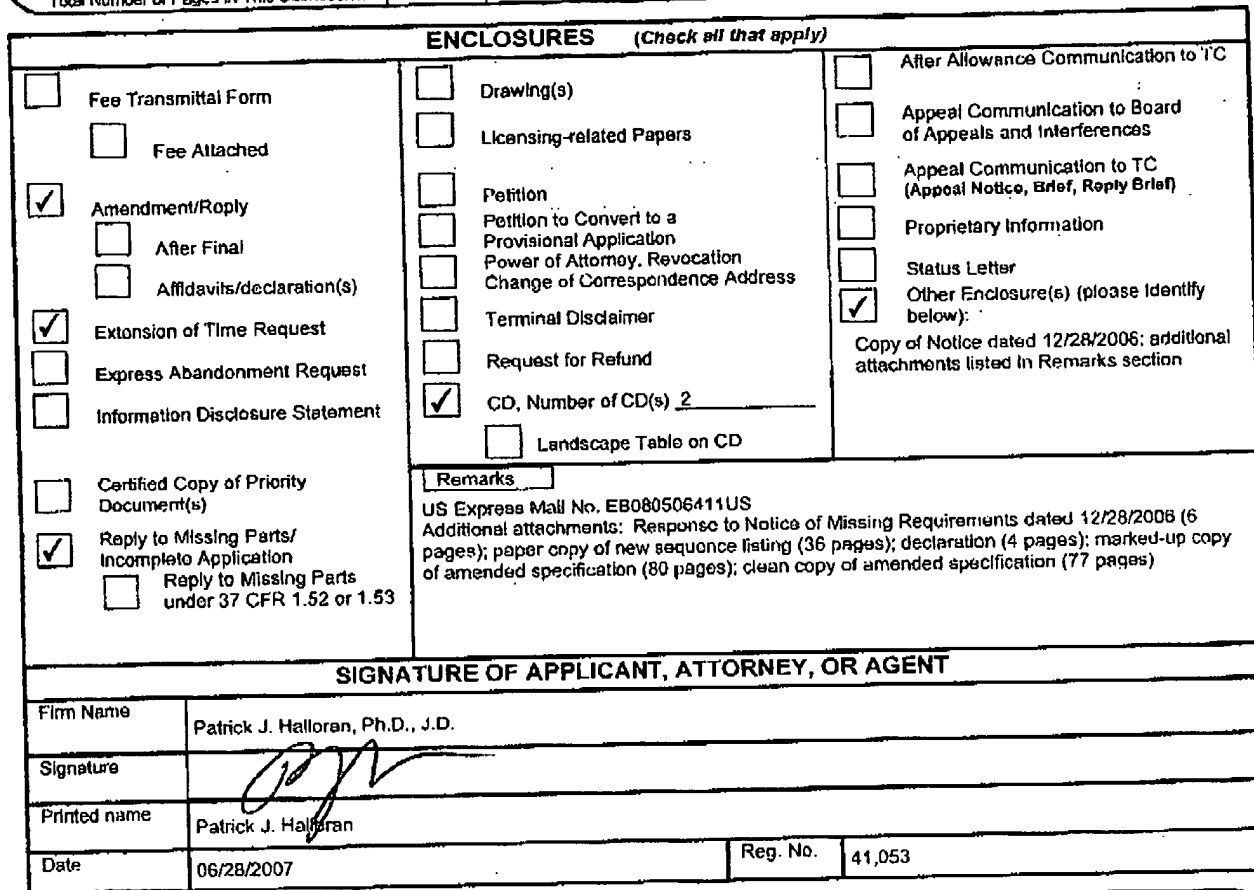 Total Number of Pages in This Submission
ENCLOSURES (Check all that apply)
Fee Transmittal Form
Fee Attached
Amendment/Reply
After Final
Affidavits/declaration(s)
Extension of Time Request
Express Abandonment Request
Information Disclosure Statement
Certified Copy of Priority
Document(s)
Reply to Missing Parts/
Incomplete Application
Reply to Missing Parts
under 37 CFR 1.52 or 1.53
Drawing(s)
Licensing-related Papers
Petition
Petition to Convert to a
Provisional Application
Power of Attorney, Revocation
Change of Correspondence Address
Terminal Disclaimer
Request for Refund
CD, Number of CD(s) 2
Landscape Table on CD
After Allowance Communication to TC
Appeal Communication to Board
of Appeals and Interferences
Appeal Communication to TC
(Appeal Notice, Brief, Reply Brief)
Proprietary Information
Status Letter
Other Enclosure(s) (please identify
below):
Copy of Notice dated 12/28/2006; additional
attachments listed in Remarks section
Remarks
US Express Mail No. EB080506411US
Additional attachments: Response to Notice of Missing Requirements dated 12/28/2006 (6
pages); paper copy of new sequence listing (36 pages); declaration (4 pages); marked-up copy
of amended specification (80 pages); clean copy of amended specification (77 pages)
SIGNATURE OF APPLICANT, ATTORNEY, OR AGENT
Firm Name
Patrick J. Halloran, Ph.D., J.D.
Signature
Printed name
Patrick J. Halloran
Date
06/28/2007
Reg. No.
41,053